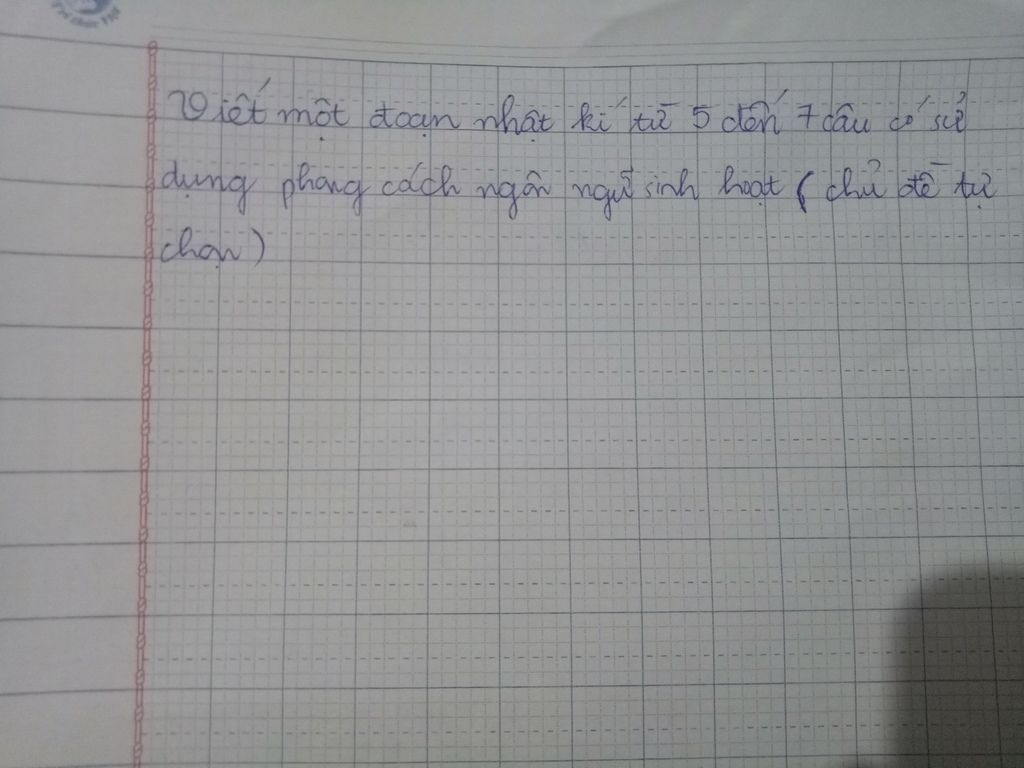 Viết một đoạn nhật kí từ 5 đến 7 câu có sử
dụng phong cách ngôn ngữ sinh hoạt ( chủ đề tự
chọn )